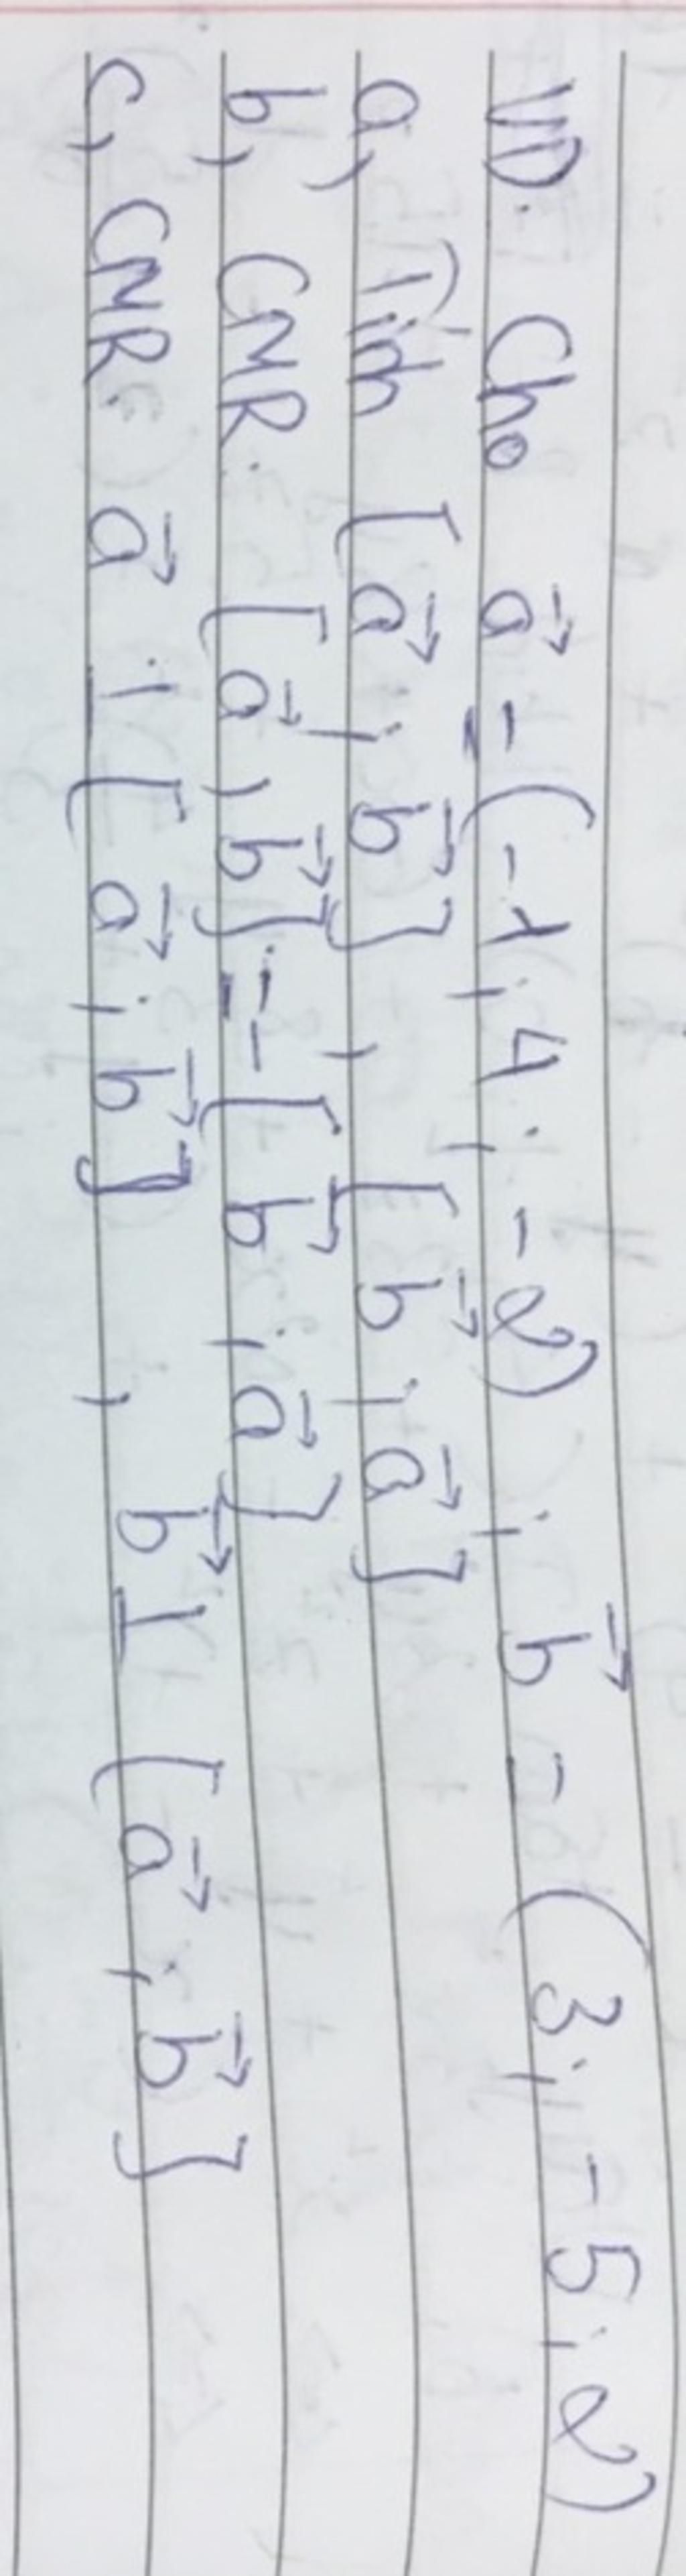 VD. Cho a⃗ = (-1; 4; -2); b⃗ = (3; -5; 2)
a, Tính [a⃗; b⃗], [b⃗; a⃗]
b, CMR: [a⃗, b⃗] = -[b⃗; a⃗]
c, CMR: a⃗ ⊥ [a⃗; b⃗], b⃗ ⊥ [a⃗; b⃗]